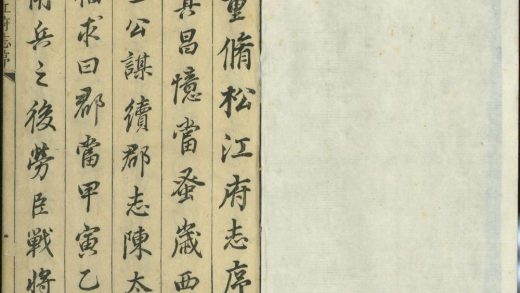 重脩松江府志序
其昌憶當蚤歲西
公謀續郡志陳太
求曰郡當甲寅乙
兵之後勞臣戰將
江府志序